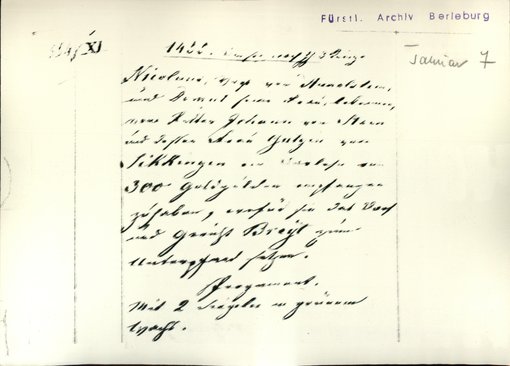 Fürstl. Archiv Berleburg
XI
Januar 7
1422.
Nicolaus, Vogt von Hunolstein,
und Demut seine Frau, bekennen,
Johann von Stein
und dessen Frau Gutgen von
Sikkingen ein Darlehn von
300 Goldgulden empfangen
zu haben, wofür sie das Dorf
und Gericht Breyt zum
Unterpfand setzen.
Pergament.
Mit 2 Siegeln in grünem
Wachs.